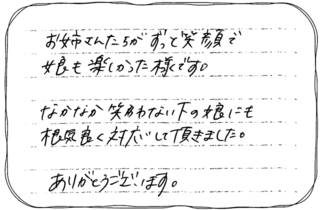 お姉さんたちがずっと笑顔で
娘も楽しかった様です。
なかなか笑わない下の娘にも
根気良く対応して頂きました。
ありがとうございます。